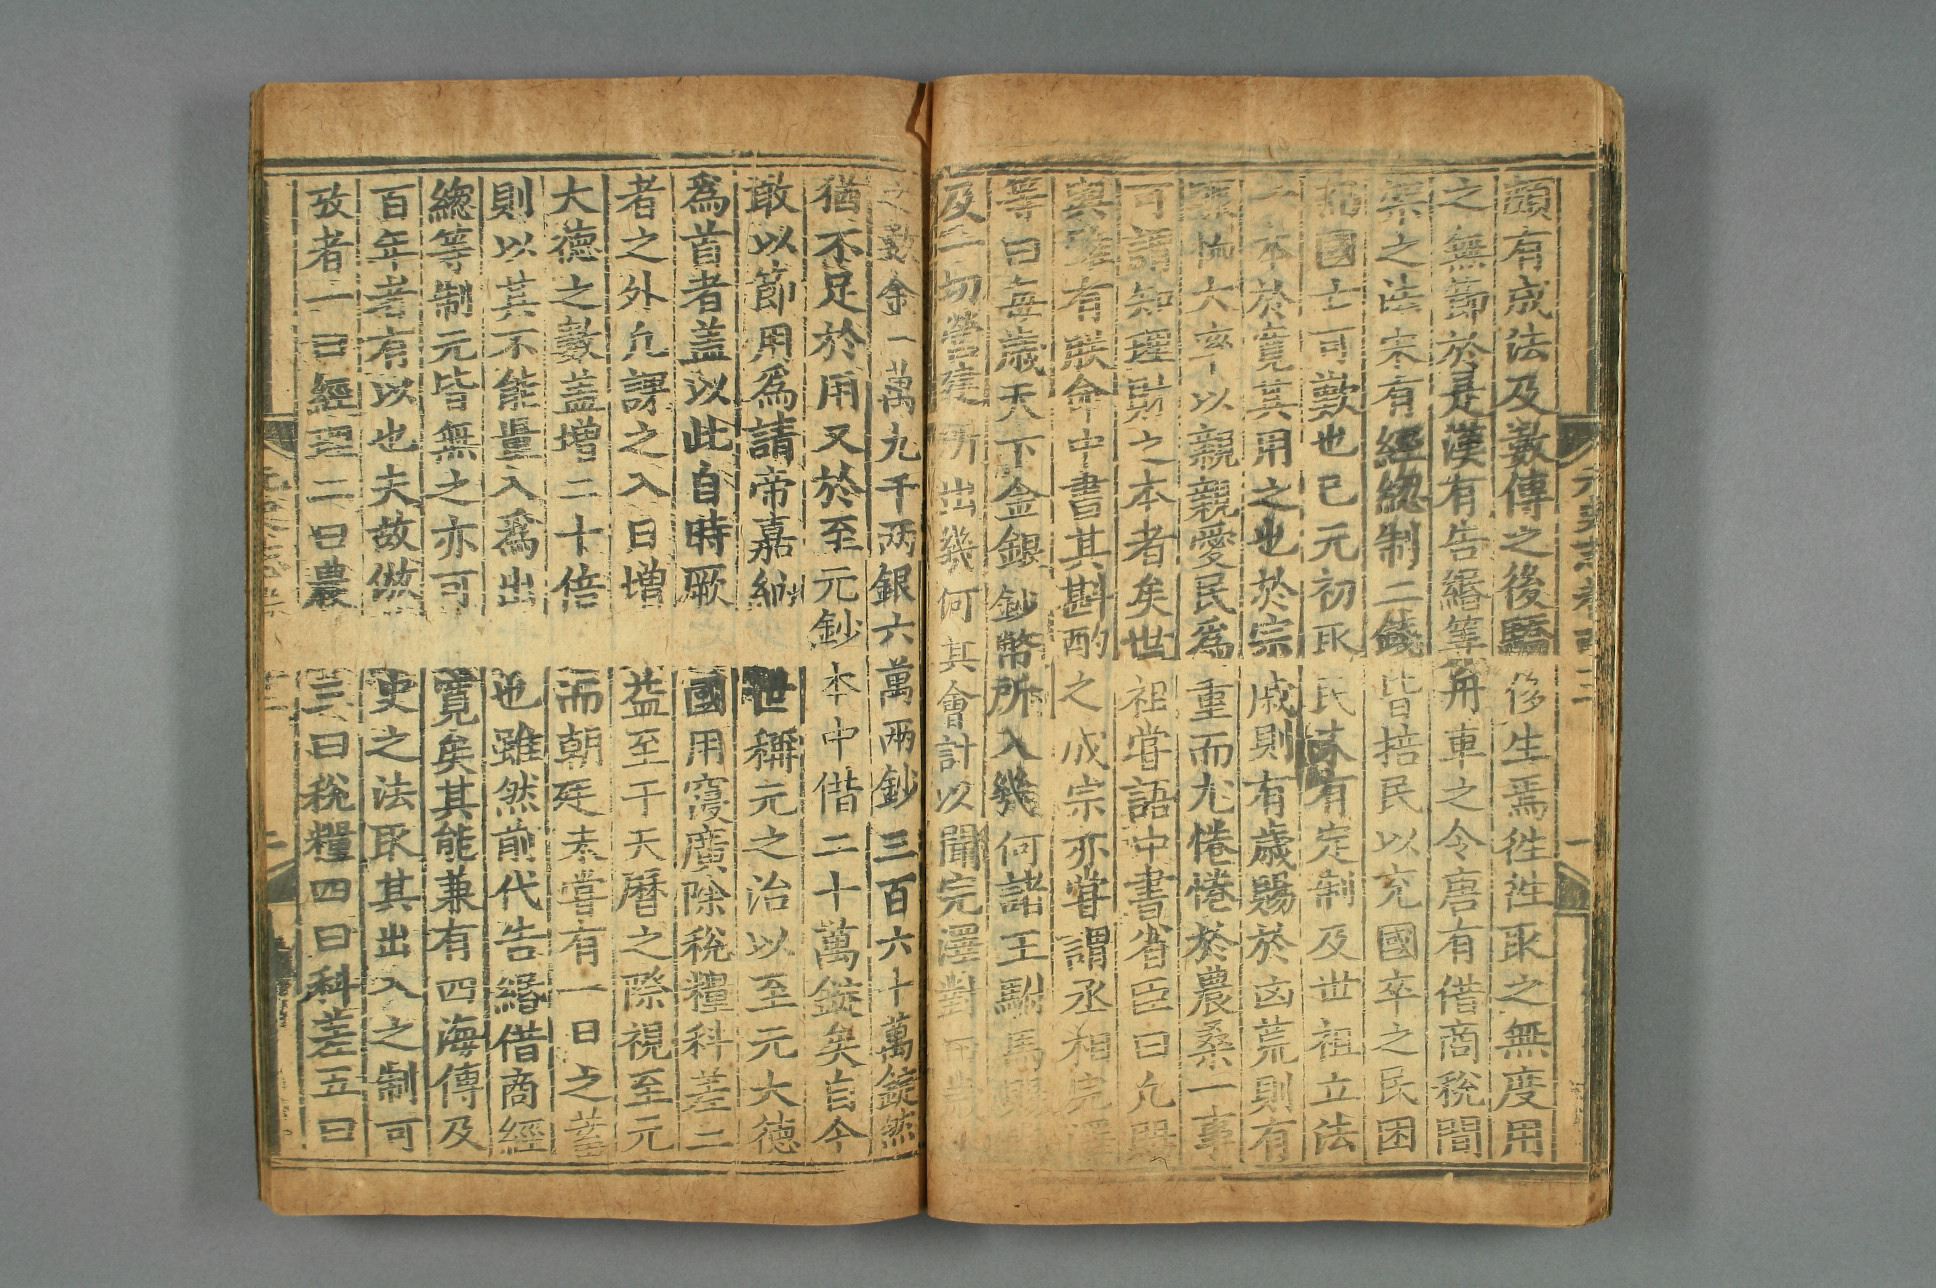 頗有成法及數傳之後驕侈生焉徃徃取之無度用
之無節於是漢有告緡等舟車之令唐有借商稅間
架之法宋有經緫制二錢皆掊民以充國卒之民困
而國士可歎也已元初取民未有定制及世祖立法
一本於寛其用之也於宗戚則有歲賜於凶荒則有
賑恤大率以親親愛民爲重而尤惓惓於農桑一事
可謂知理財之本者矣世祖嘗語中書省臣曰凡賜
與雖有朕命中書其斟酌之成宗亦嘗謂丞相完澤
等曰每歲天下金銀鈔幣所入幾何諸王駙馬賜與
及一切營建所出幾何其會計以聞完澤對曰歲入
之數金一萬九千兩銀六萬兩鈔三百六十萬錠然
猶不足於用又於至元鈔本中借二十萬錠矣自今
敢以節用爲請帝嘉納世稱元之治以至元大德
爲首者盖以此自時厥國用寖廣除稅糧科差二
者之外凡課之入日增益至于天曆之際視至元
大德之數盖増二十倍而朝廷未嘗有一日之蓄
則以其不能量入爲出也雖然前代告緡借商經
緫等制元皆無之亦可寛矣其能兼有四海傳及
百年者有以也夫故倣史之法取其出入之制可
攷者一曰經理二曰農三曰稅糧四曰科差五曰